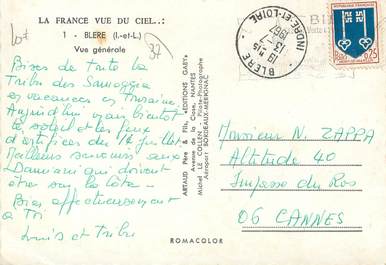 LA FRANCE VUE DU CIEL...:
1 - BLERE (I.-et-L.)
Vue générale
37
Bises de toute la
Tribu des
en vacances en Touraine
Aujourd'hui
le soleil et les feux
d'artifices du 14 Juillet
Meilleurs souvenirs aux
Damiani qui doivent
être sur la
Bien affectueusement
à Toi
Louis et tribu
ARTAUD Père & Fils, "EDITIONS GABY"
Avenue de la Close, NANTES
Michel LE COLLEN - Pilote-Photographe
Aéroport BORDEAUX-MERIGNAC
ROMACOLOR
BLERE
INDRE-ET-LOIRE
19 H 15
13-7
1967
0,25
Monsieur N. ZAPPA
Altitude 40
Impasse du Ros
06 CANNES